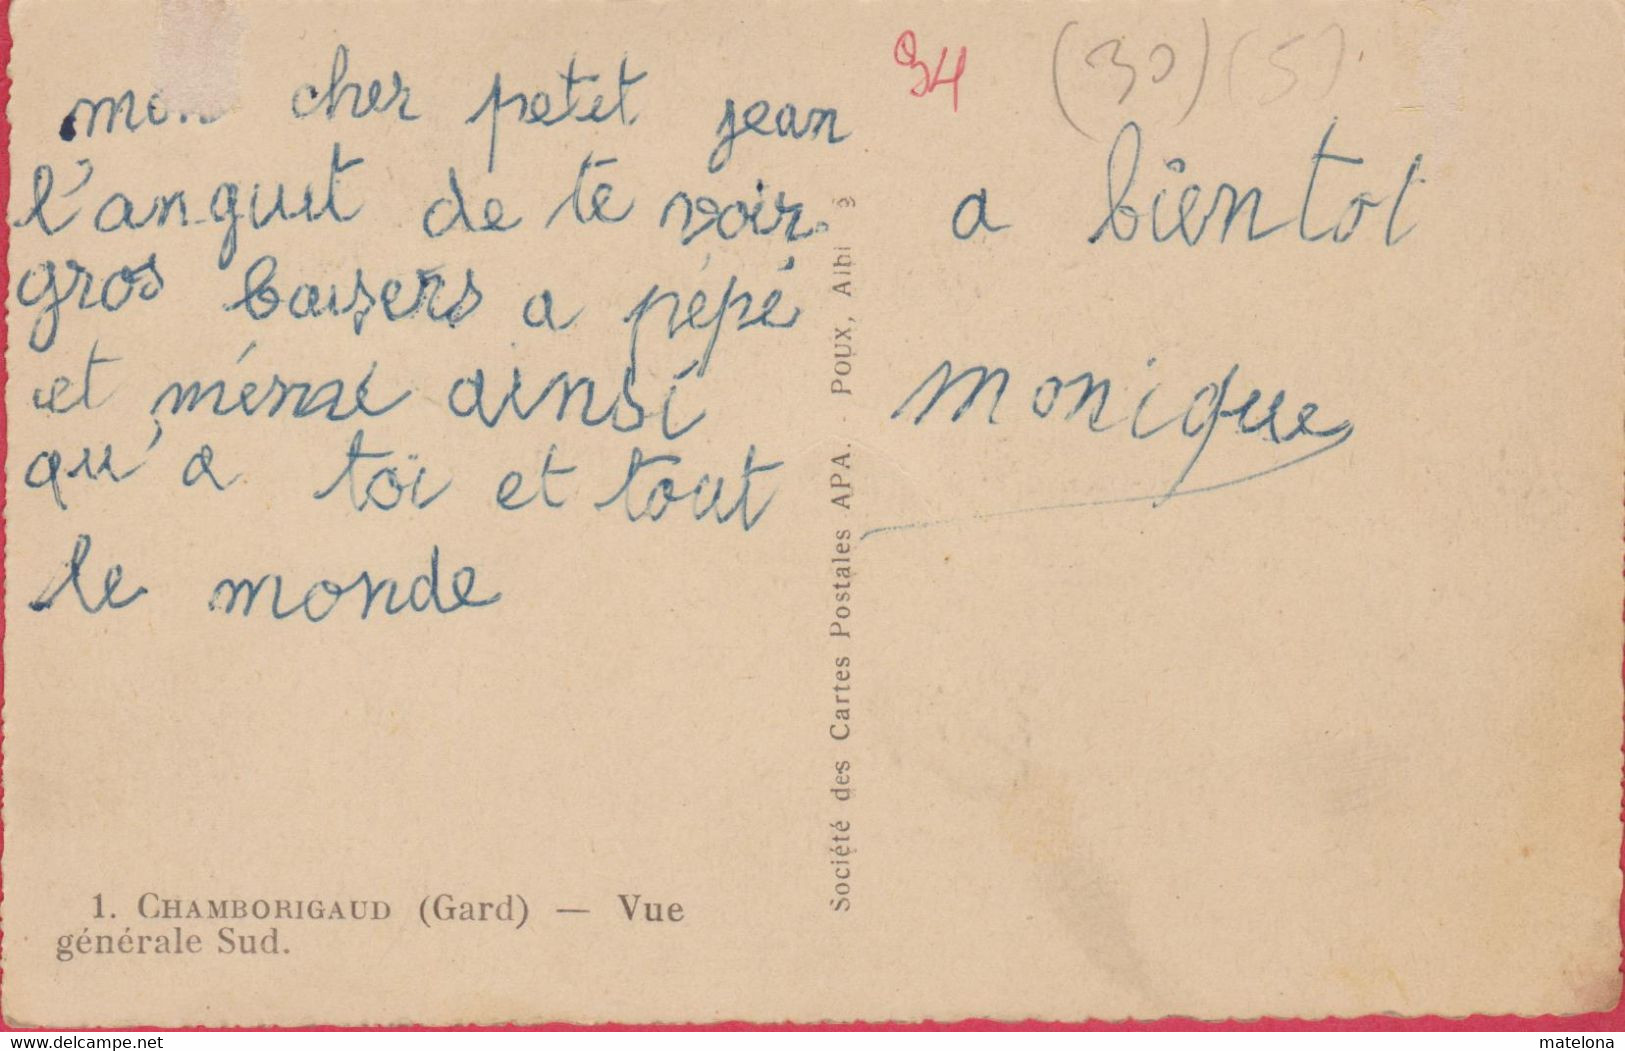 mon cher petit jean
l'anguit de te voir
gros baisers a pépé
et mémé ainsi
qu'a toi et tout
le monde
a bientot
monique
94
(30) (5)
Société des Cartes Postales APA. - POUX, Albi 3
1. CHAMBORIGAUD (Gard) — Vue
générale Sud.
delcampe.net
matelona